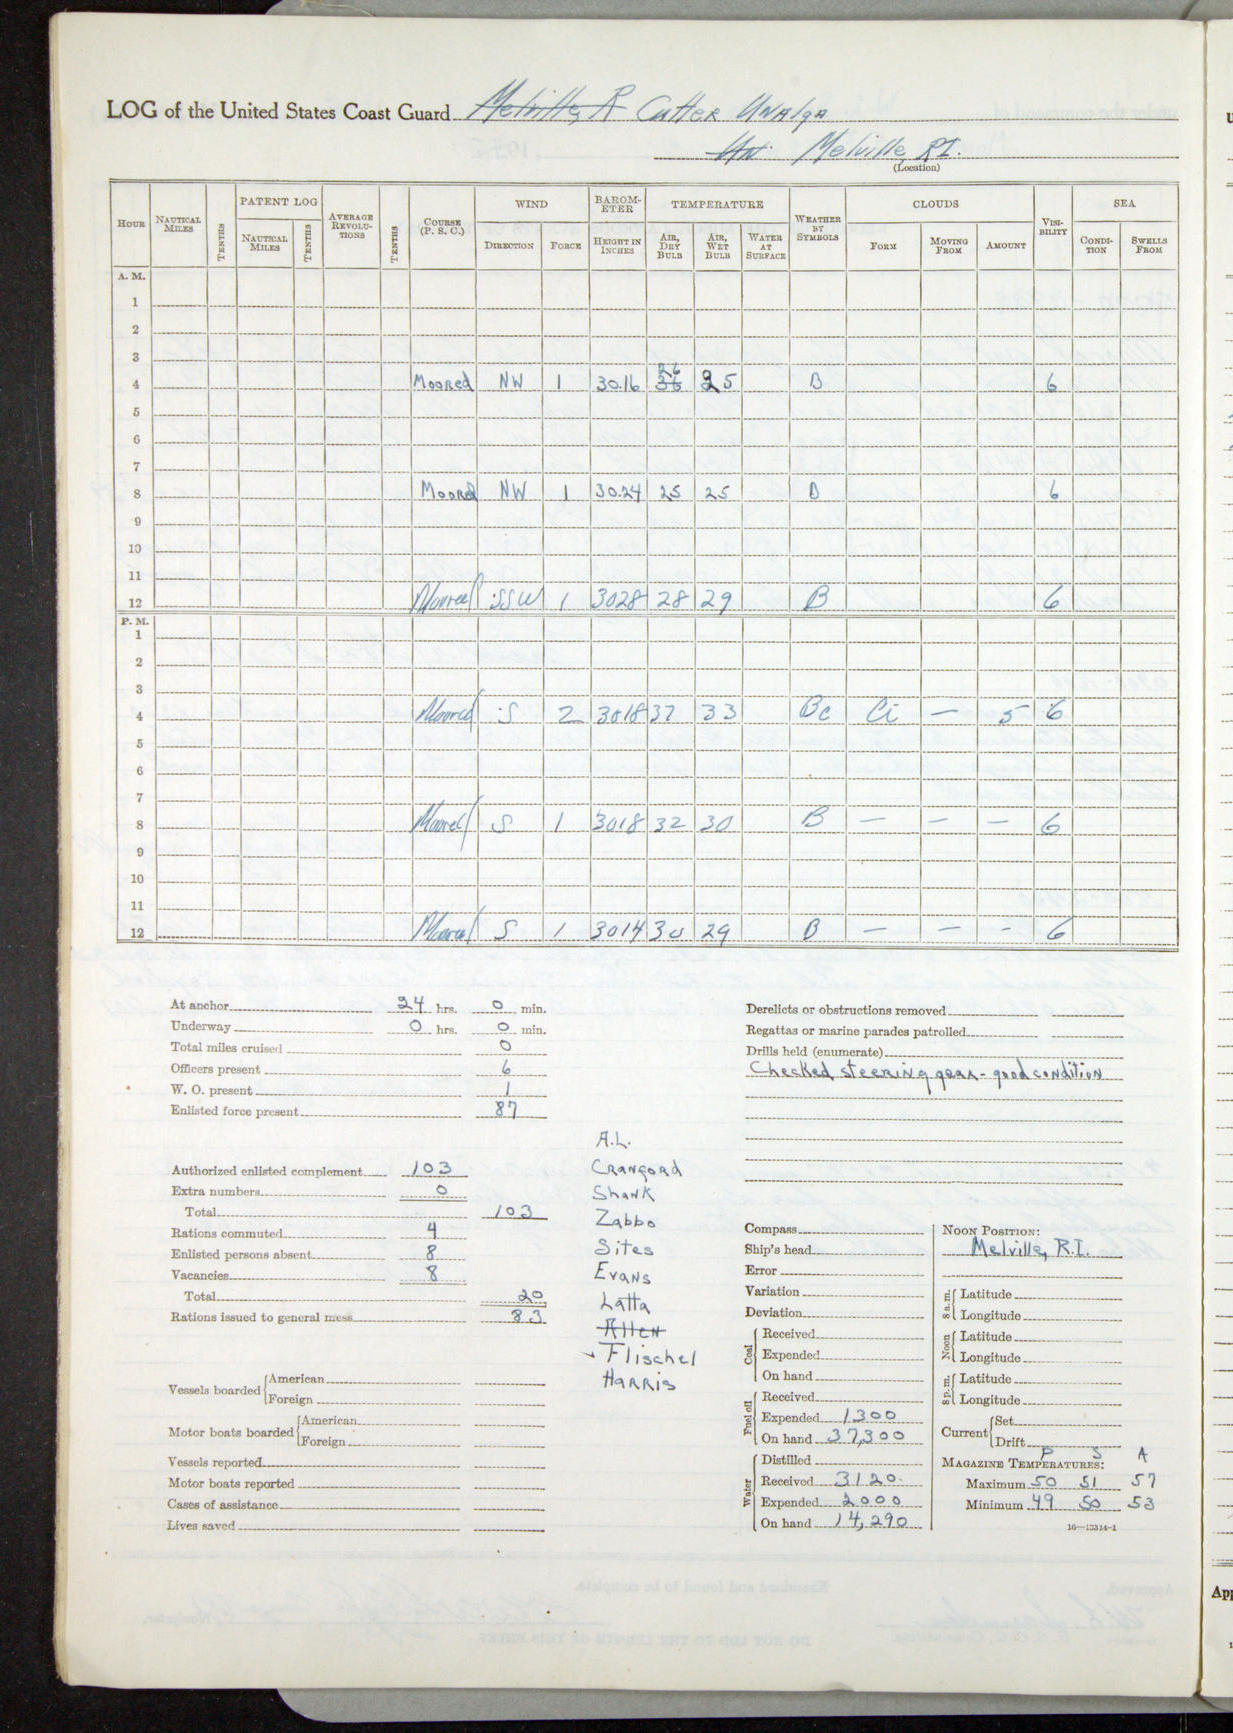 LOG of the United States Coast Guard Melville, R Cutter Unalga
Un. Melville, R.I.
(Location)
HOUR NAUTICAL MILES TENTHS PATENT LOG NAUTICAL MILES TENTHS AVERAGE REVOLUTIONS TENTHS COURSE (P. S. C.) WIND DIRECTION FORCE BAROMETER HEIGHT IN INCHES TEMPERATURE AIR, DRY BULB AIR, WET BULB WATER AT SURFACE WEATHER BY SYMBOLS CLOUDS FORM MOVING FROM AMOUNT VISIBILITY SEA CONDITION SWELLS FROM
A. M.
1
2
3
4 Moored NW 1 30.16 36 26 25 B 6
5
6
7
8 Moored NW 1 30.24 25 25 B 6
9
10
11
12 Moored SSW 1 3028 28 29 B 6
P. M.
1
2
3
4 Moored S 2 3018 37 33 Bc Ci — 5 6
5
6
7
8 Moored S 1 3018 32 30 B — — — 6
9
10
11
12 Moored S 1 3014 30 29 B — — - 6
At anchor 24 hrs. 0 min.
Underway 0 hrs. 0 min.
Total miles cruised 0
Officers present 6
W. O. present 1
Enlisted force present 87
Authorized enlisted complement 103
Extra numbers 0
Total 103
Rations commuted 4
Enlisted persons absent 8
Vacancies 8
Total 20
Rations issued to general mess 83
Vessels boarded American
Foreign
Motor boats boarded American
Foreign
Vessels reported
Motor boats reported
Cases of assistance
Lives saved
A.L.
Crangord
Shank
Zabbo
Sites
Evans
Latta
Allen
Flischel
Harris
Derelicts or obstructions removed
Regattas or marine parades patrolled
Drills held (enumerate)
Checked steering gear - good condition
Compass
Ship's head
Error
Variation
Deviation
Coal Received
Expended
On hand
Fuel oil Received
Expended 1300
On hand 37,300
Water Distilled
Received 3120.
Expended 2000
On hand 14,290
NOON POSITION:
Melville, R.I.
8 a. m. Latitude
Longitude
Noon Latitude
Longitude
8 p. m. Latitude
Longitude
Current Set
Drift
P S A
MAGAZINE TEMPERATURES:
Maximum 50 51 57
Minimum 49 50 53
16—13314-1
App